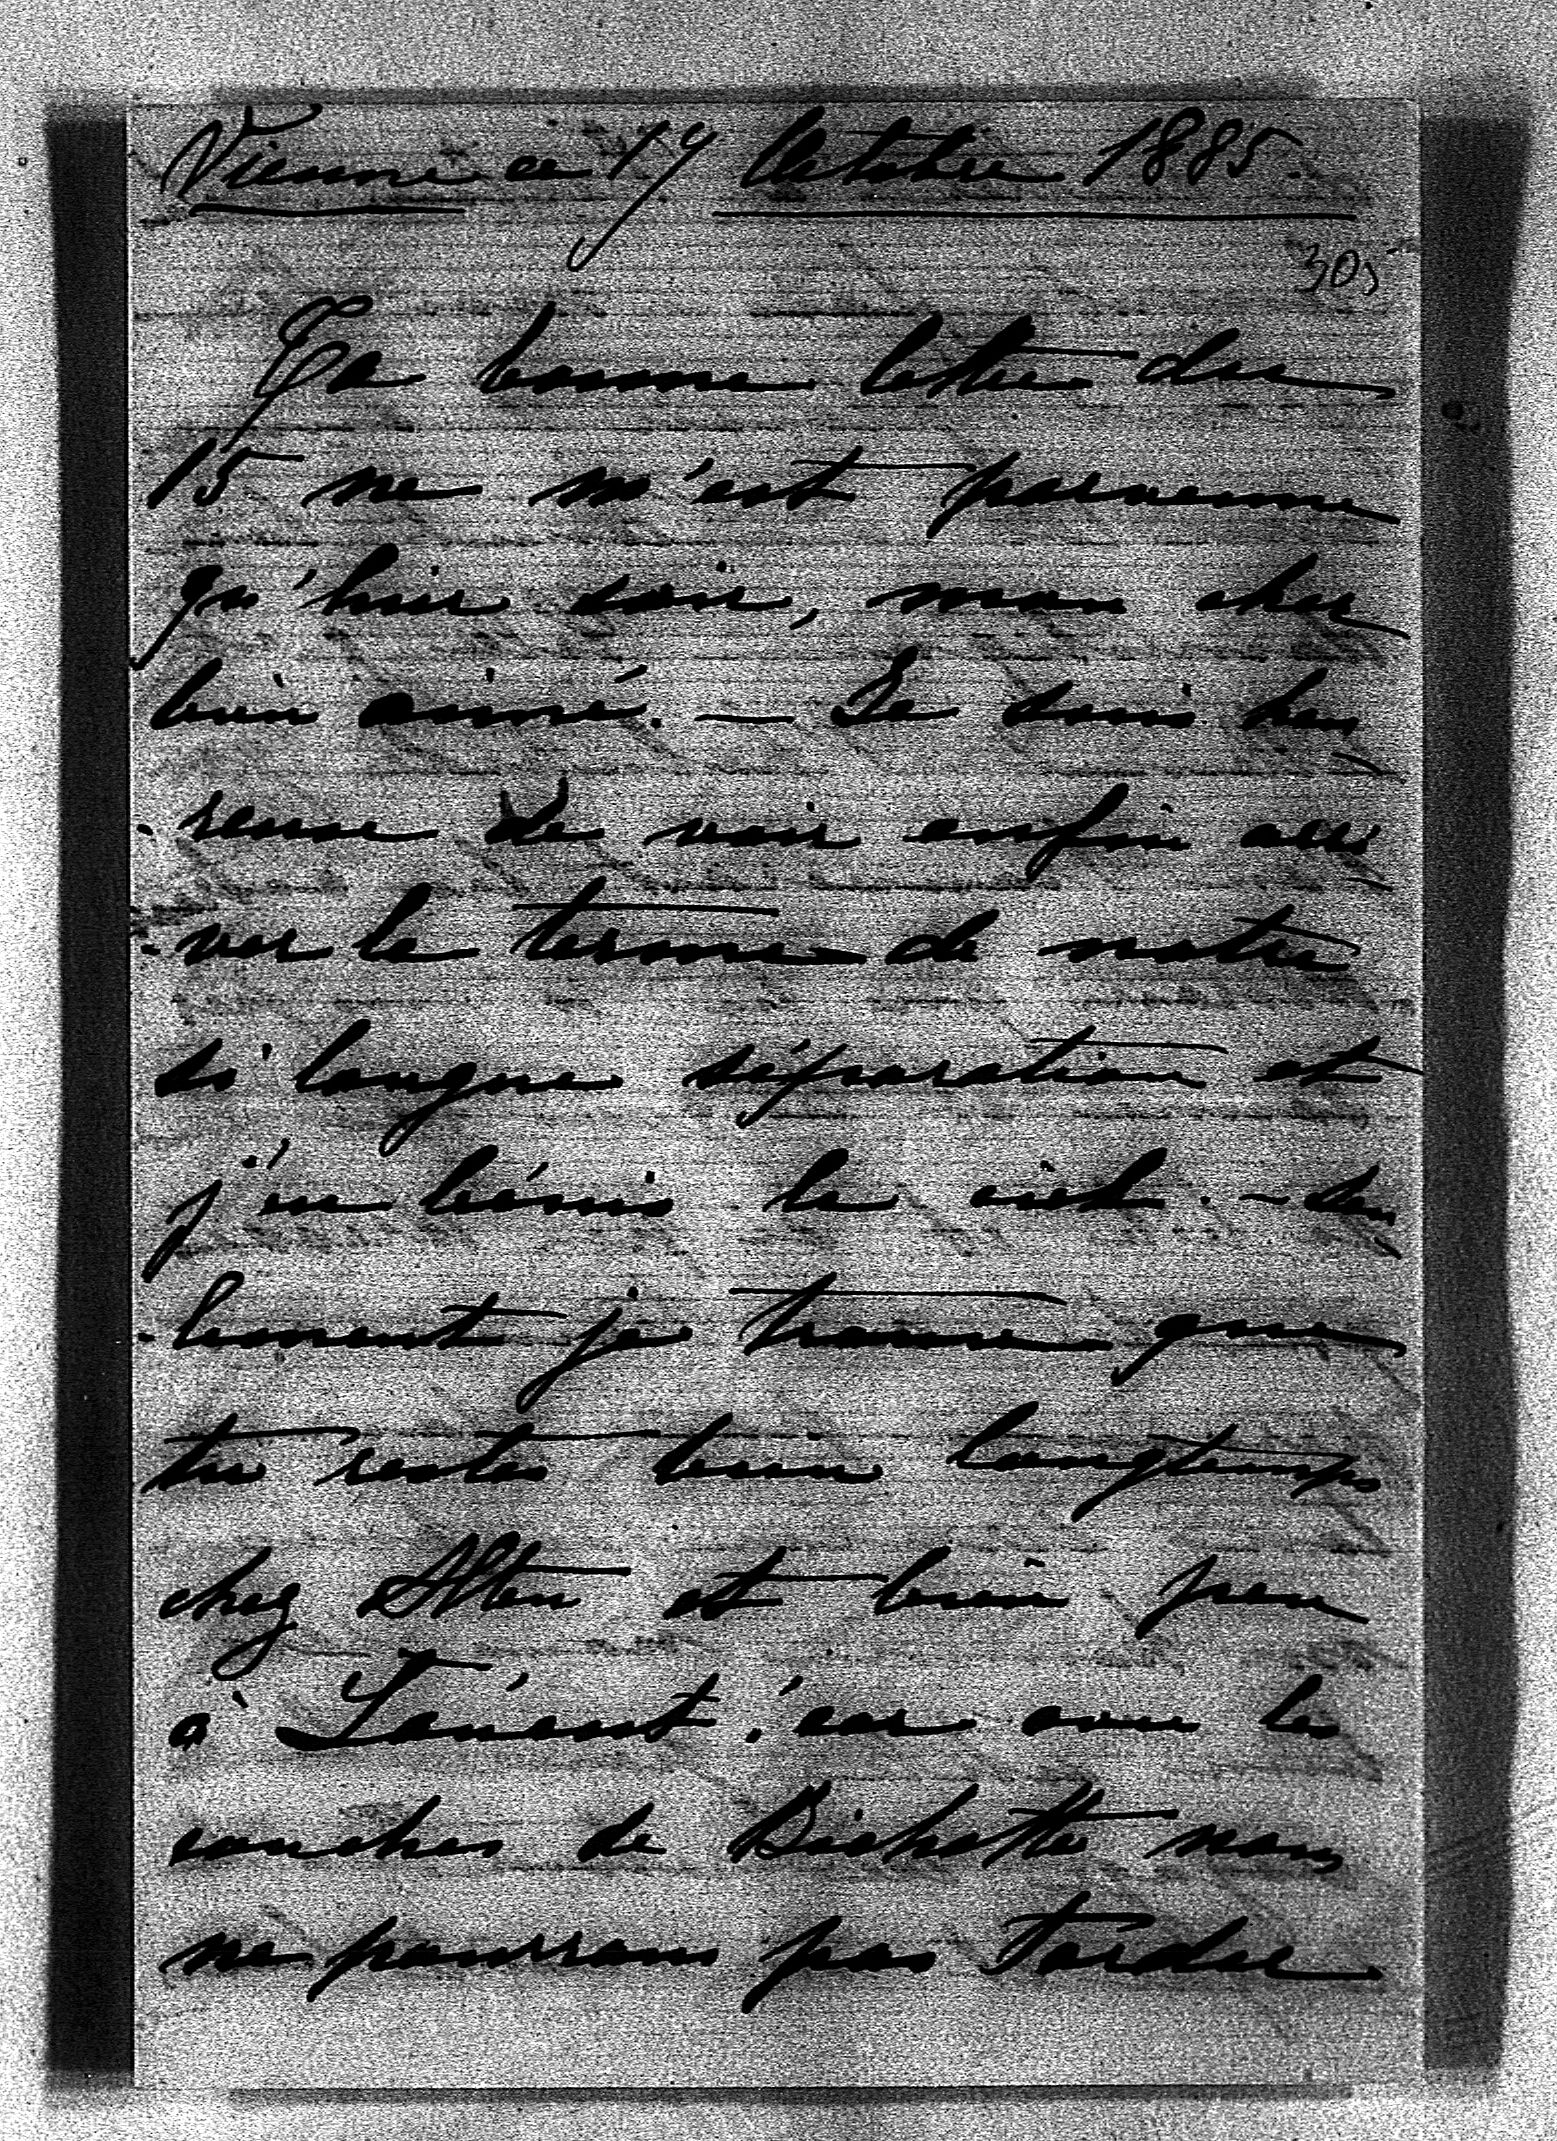 Vienne ce 19 Octobre 1885.
305
Ta bonne lettre du
15 ne m'est parvenue
qu'hier soir, mon cher
bien aimé. — Je suis heu
-reuse de voir enfin arri
-ver le terme de notre
si longue séparation et
j'en bénis le ciel. — Seu
-lement je trouve que
tu restes bien longtemps
chez Alten et bien peu
à ! car avec les
couches de nous
ne pourrons pas tarder